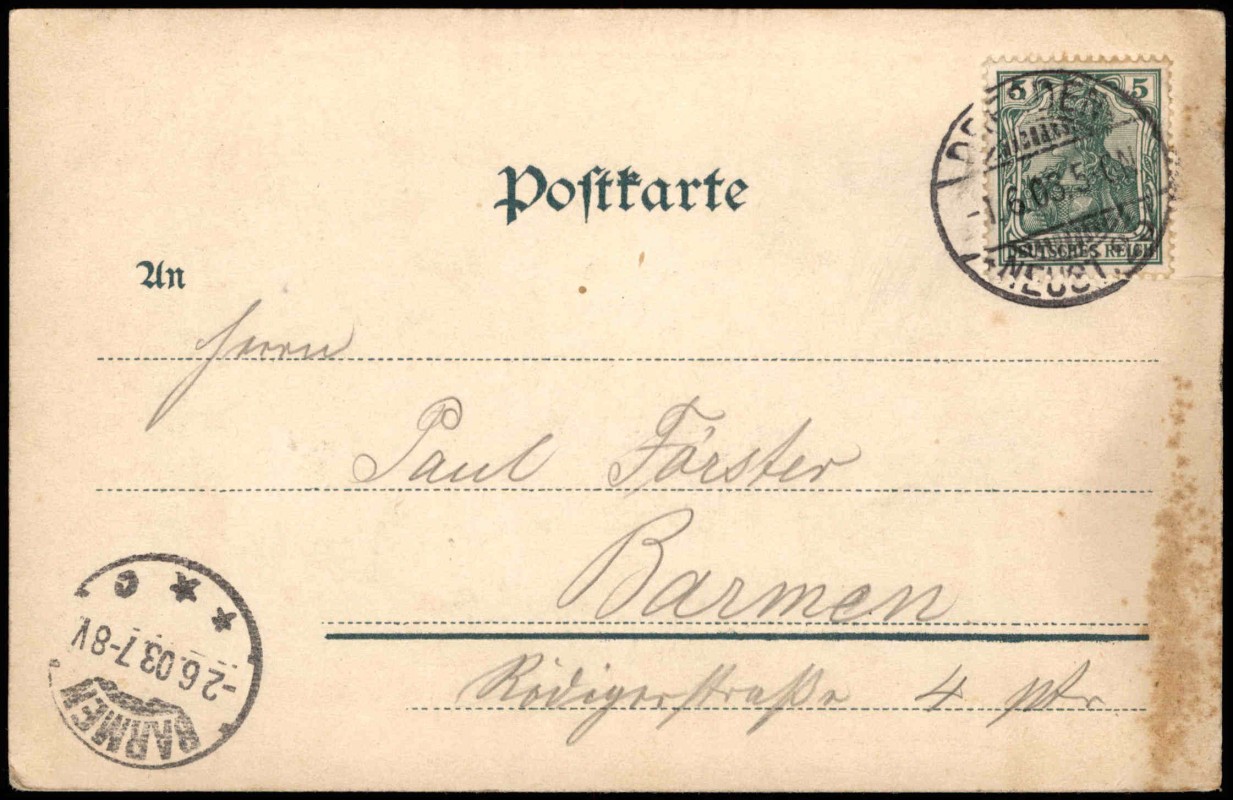 5 5
DEUTSCHES REICH
DRESDEN
-1.6.03.5-6N
NEUST.
Postkarte
An
Herrn
Paul Förster
Barmen
Rödigerstraße 4 ptr
BARMEN
-2.6.03.7-8V
* * c